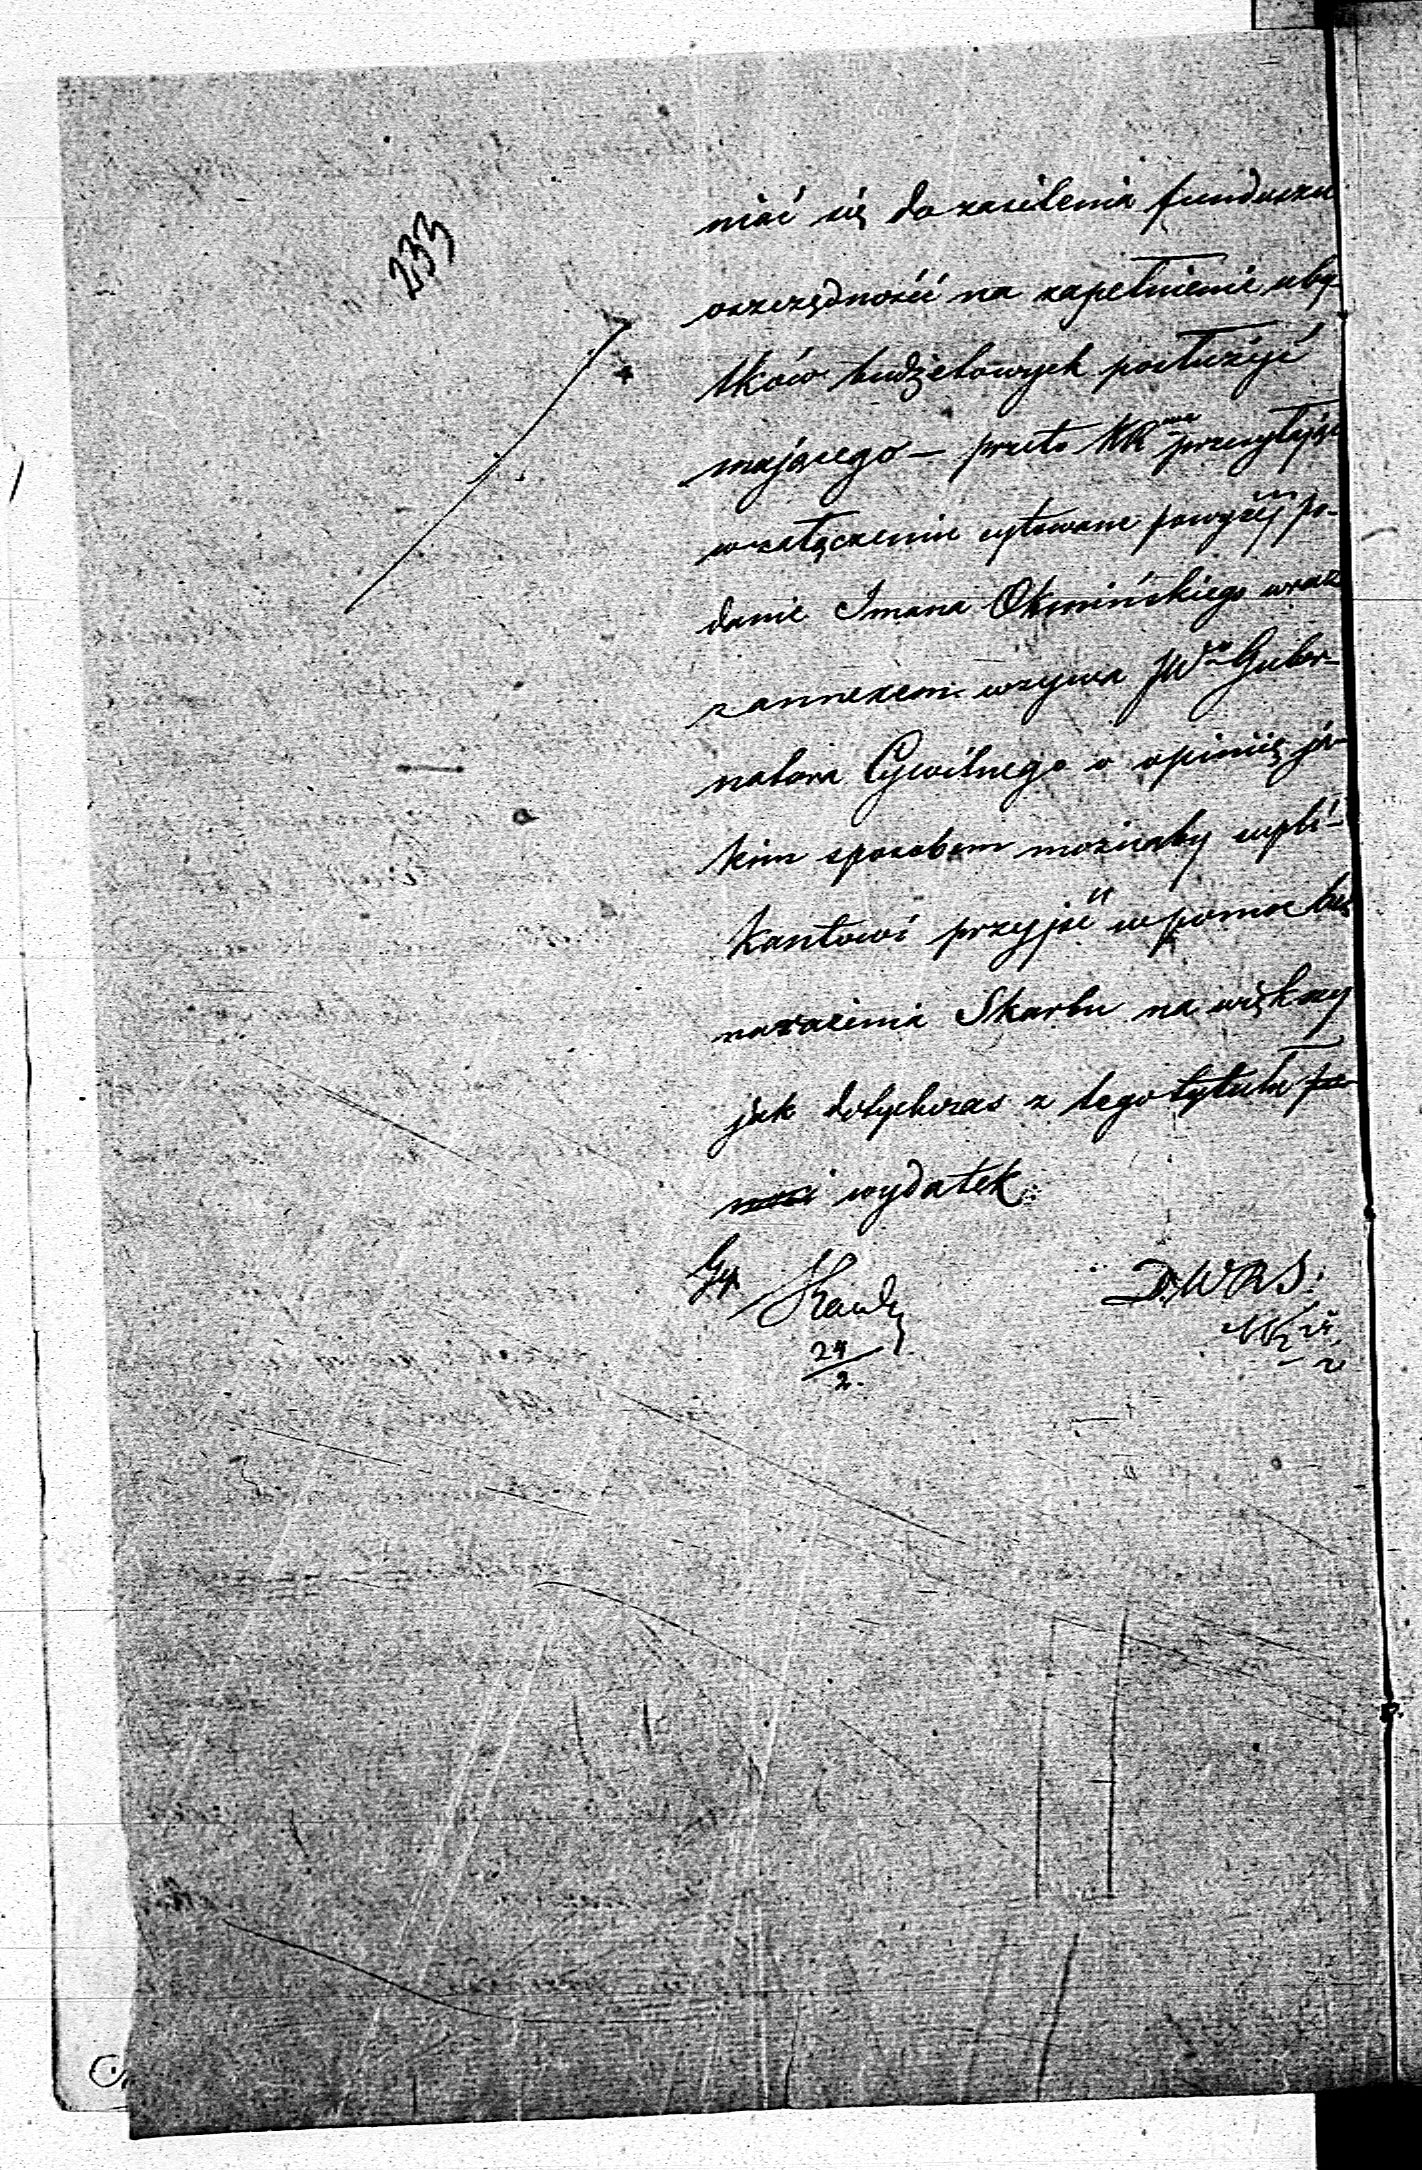 233
niać się do zasilenia funduszu
oszczędności na zapełnienie uby-
tków budżetowych posłużyć
mającego – przeto KR przesyłając
w załączeniu cytowane powyżej po-
danie Imana Okmińskiego wraz
z annexem wzywa JW Guber-
natora Cywilnego o opinię ja-
kim sposobem możnaby supli-
kantowi przyjść w pomoc bez
narażenia Skarbu na większy
jak dotychczas z tego tytułu po-
nosi wydatek
24/2.